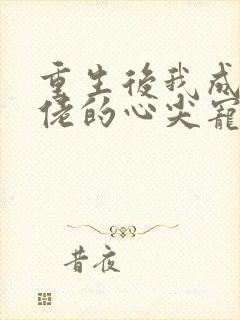 重生後我成
佬的心尖寵
昔夜